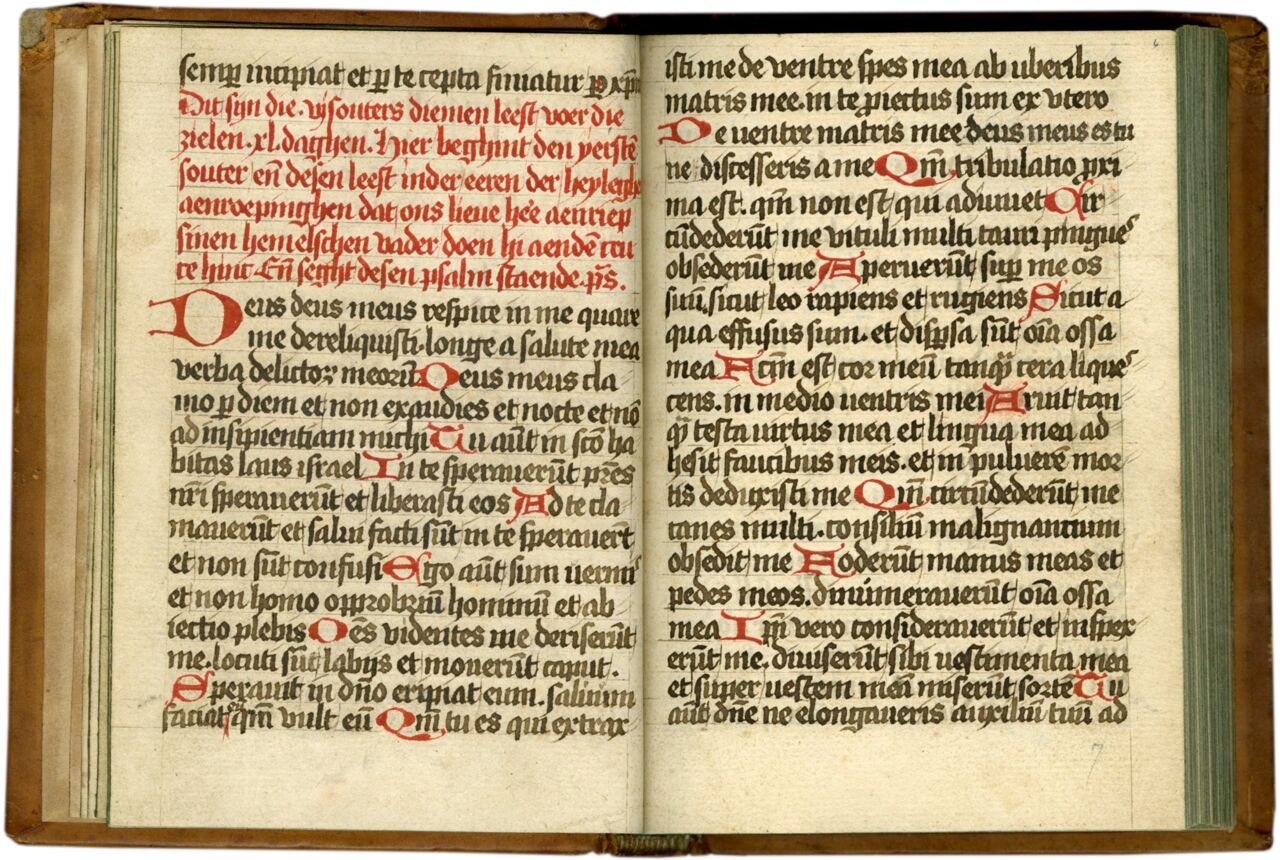 semp incipiat et p te cepta finiatur p xpm
Dit syn die .vij souters diemen leest voer die
zielen .xl. daghen. Hier beghint den yersten
souter en̄ desen leest inder eeren der heyleghe
aenroepinghen dat ons lieue he'e aenriep
sinen hemelschen vader doen hi aendē cru
ce hinc. En̄ seght desen psalm staende. p̄s.
Deus deus meus respice in me quare
me dereliquisti longe a salute mea
verba delictoꝝ meorū Deus meus cla
mo p diem et non exaudies et nocte et nō
ad insipientiam michi Tu aūt in scō ha
bitas laus israel In te sperauerūt pr̄es
nr̄i sperauerūt et liberasti eos Ad te cla
mauerūt et salui facti sūt in te sperauert̄
et non sūt confusi Ego aūt sum uermis
et non homo opprobriū hominū et ab
iectio plebis Oēs videntes me deriserūt
me. locuti sūt labijs et mouerūt caput.
Sperauit in dn̄o eripiat eum. saluum
faciat eū qm̄ vult eū Qm̄ tu es qui extrax
isti me de ventre spes mea ab uberibus
matris mee. in te proiectus sum ex vtero
De uentre matris mee deus meus es tu
ne discesseris a me Qm̄ tribulatio prxi
ma est. qm̄ non est qui adiuuet Cir
cūdederūt me vituli multi tauri pingues
obsederūt me Aperuerūt sup me os
suū, sicut leo rapiens et rugiens Sicut a
qua effusus sum. et dispsa sūt oīa ossa
mea Fcm̄ est cor meū tanqꝫ cera liques
cens. in medio uentris mei Aruit tan
qꝫ testa uirtus mea et lingua mea ad
hesit faucibus meis. et in puluerē mor
tis deduxisti me Qm̄ circūdederūt me
canes multi. consiliū malignantium
obsedit me Foderūt manus meas et
pedes meos. dinumerauerūt oīa ossa
mea Ipi̅ vero considerauerūt et inspex
erūt me. diuiserūt sibi uestimenta mea
et super uestem meā miserūt sortē Tu
aūt dn̄e ne elongaueris auxiliū tuū ad
7